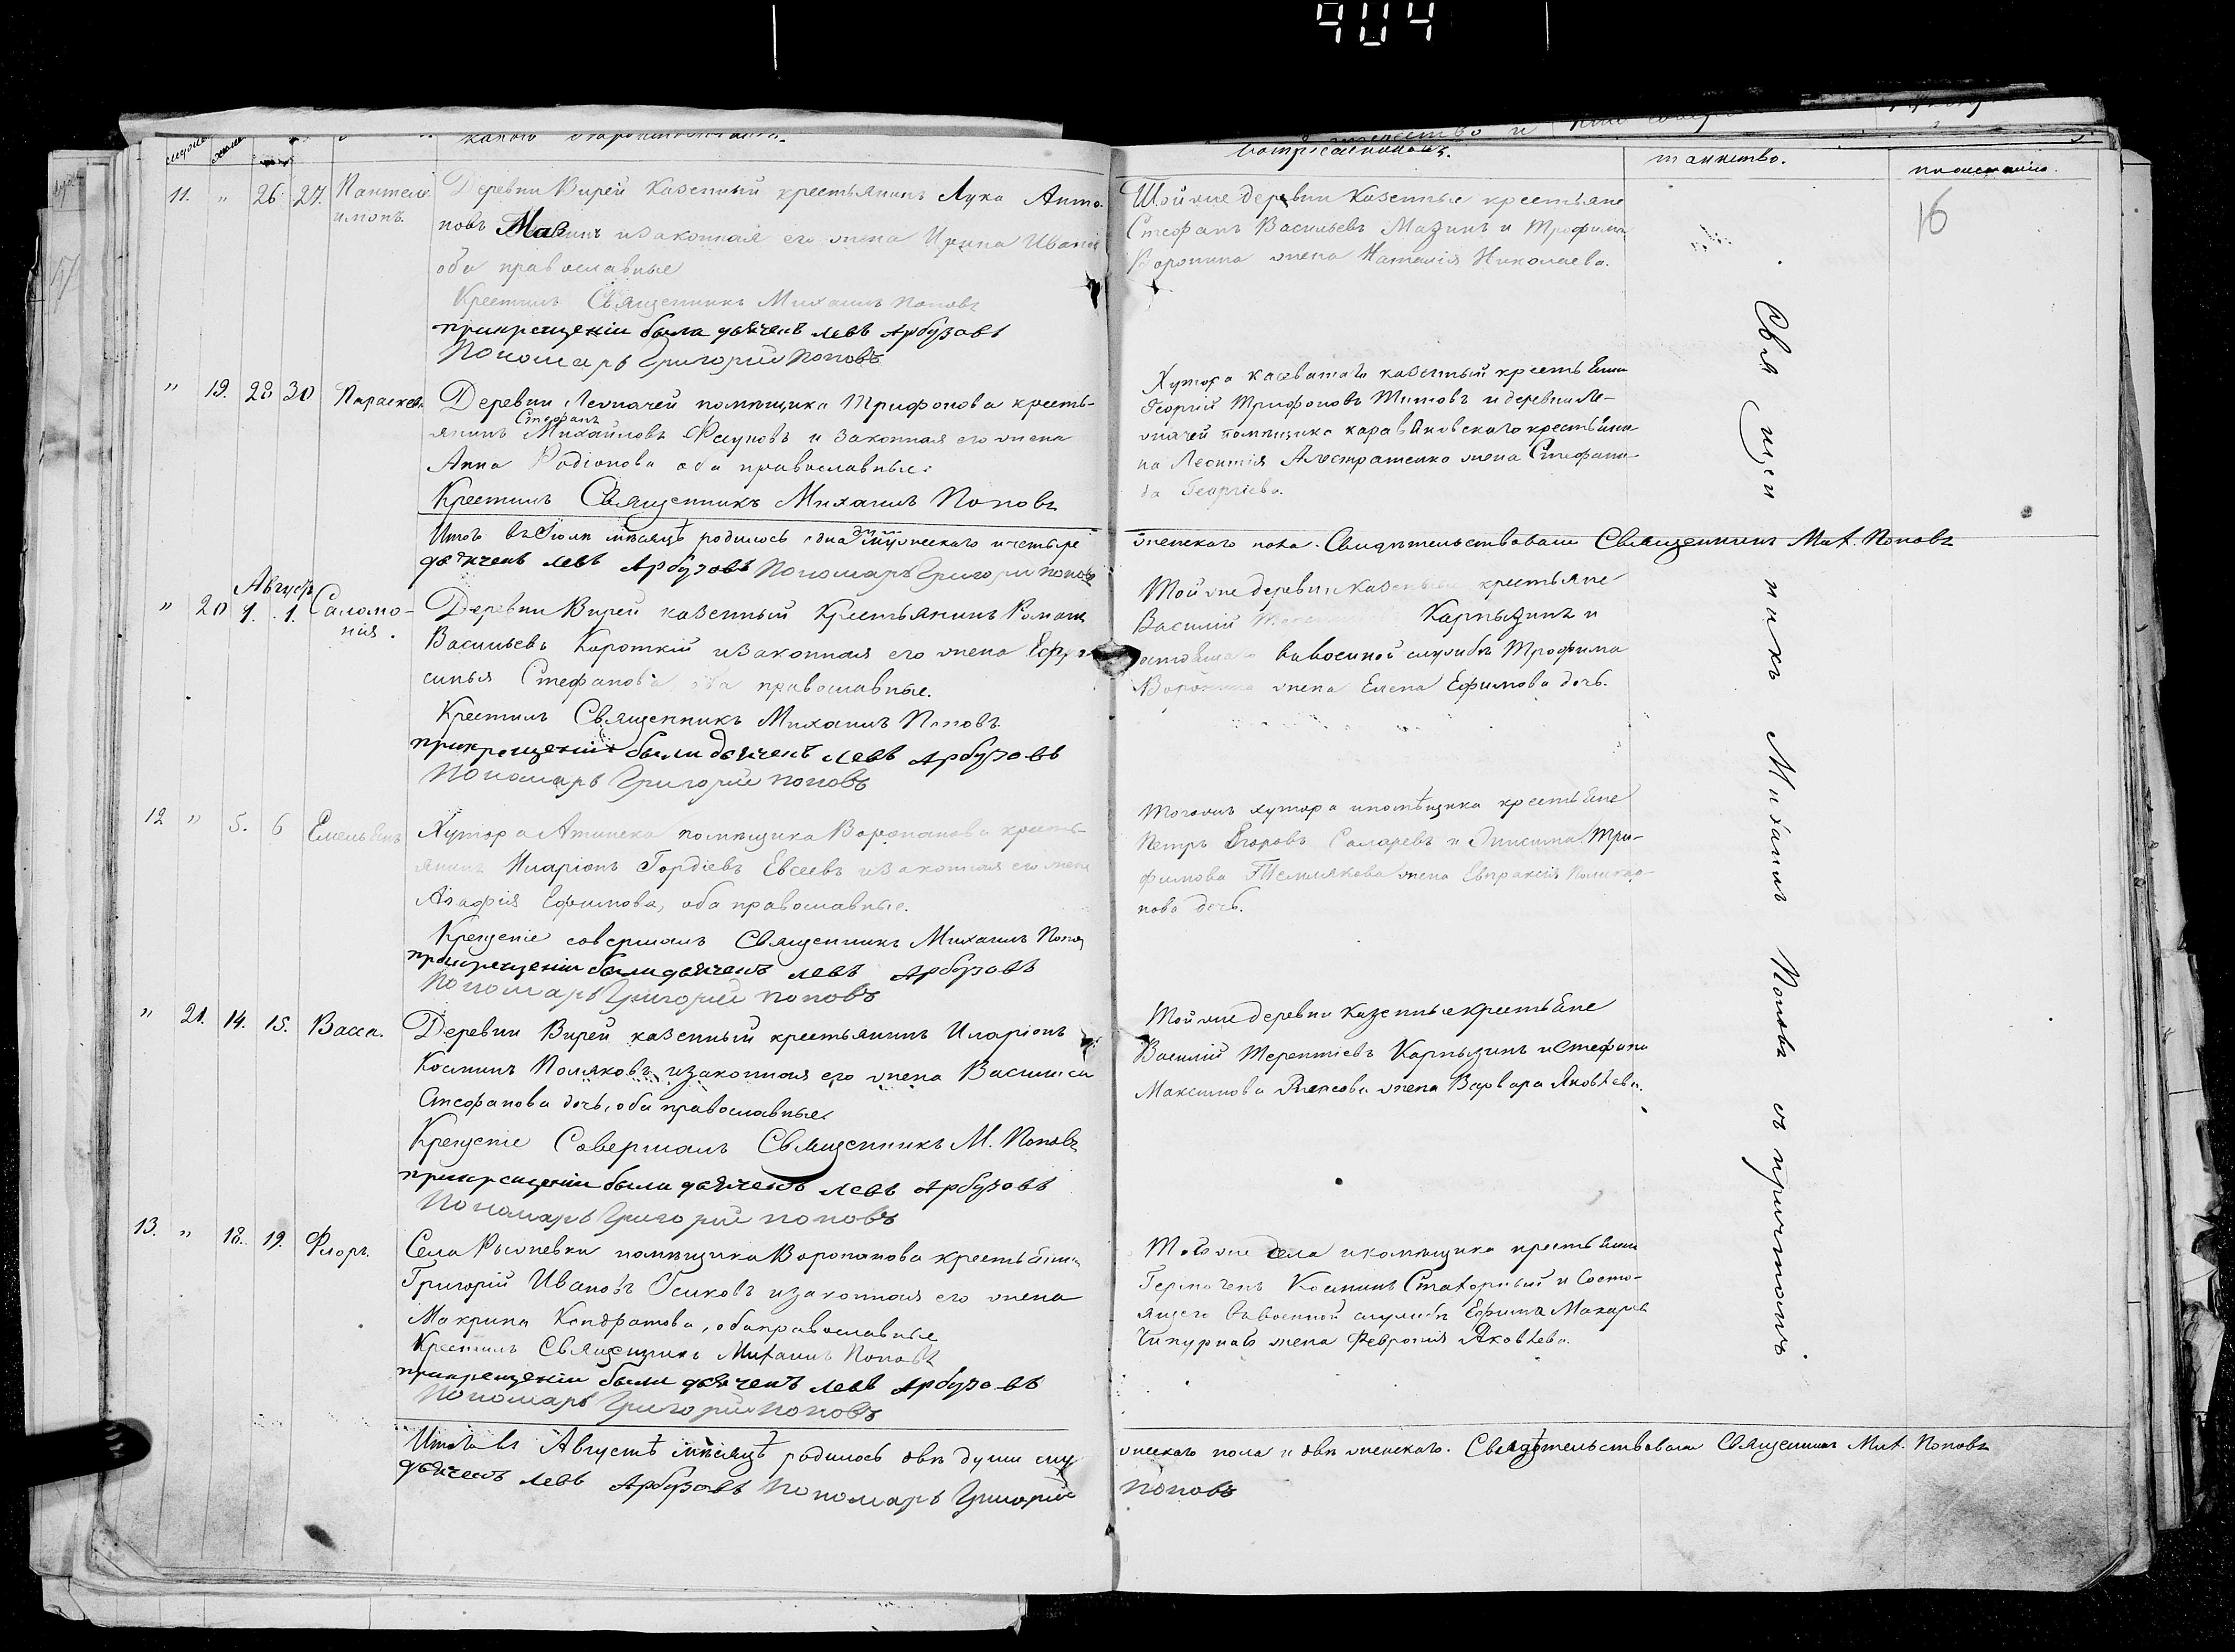 904
какого вѣроисповѣданія.
воспріемниковъ.
таинство.
16
11. " 26. 27. Пантелеимонъ.
Деревни Вирей казенный крестьянинъ Лука Анто-
новъ Мазинъ и законная его жена Ирина Иванова
оба православные
Крестилъ Священникъ Михаилъ Поповъ
прикрещеніи были дьячекъ левъ Арбузовъ
Пономарь Григорий Поповъ
Той же деревни казенные крестьяне
Стефанъ Васильевъ Мазинъ и Трофима
Воронина жена Наталія Николаева.
" 19. 28 30 Параскева
Деревни помѣщика Трифонова кресть-
Стефанъ
янинъ Михайловъ и законная его жена
Анна Родіонова оба православные.
Крестилъ Священникъ Михаилъ Поповъ
Хутора казенный крестьянинъ
Георгій Трифоновъ Титовъ и деревни Ле-
помѣщика крестьяни-
на Леонтія жена Стефани-
да Георгіева.
Итого въ Іюлѣ мѣсяцѣ родилось одна мужескаго и четыре
женскаго пола. Свидѣтельствовали Священникъ Мих. Поповъ
дьячекъ левъ Арбузовъ Пономарь Григорий Поповъ
Августъ
" 20 1. 1. Саломо-
нія.
Деревни Вирей казенный Крестьянинъ Романъ
Васильевъ Короткій и законная его жена Ефро-
синья Стефанова оба православные.
Крестилъ Священникъ Михаилъ Поповъ
прикрещеніи были дьячекъ левъ Арбузовъ
Пономарь Григорий Поповъ
Той же деревни казенные крестьяне
Василій Карпызинъ и
въ военной службѣ Трофима
Воронина жена Елена Ефимова дочь.
12 " 5. 6 Емельянъ
Хутора помѣщика Воропанова кресть-
янинъ Иларіонъ Гордіевъ Евсеевъ и законная его жена
Агафія Ефимова, оба православные.
Крещеніе совершалъ Священникъ Михаилъ Поповъ
прикрещеніи были дьячекъ левъ Арбузовъ
Пономарь Григорий Поповъ
Того же хутора и помѣщика крестьяне
Петръ Егоровъ и Онисима Три-
фимова жена Евпраксія Поликар-
пова дочь.
" 21. 14. 15. Васса.
Деревни Вирей казенный крестьянинъ Иларіонъ
Косминъ Поляковъ и законная его жена Василиса
Стефанова дочь, оба православные.
Крещеніе Совершалъ Священникъ М. Поповъ
прикрещеніи были дьячекъ левъ Арбузовъ
Пономарь Григорий Поповъ
Той же деревни казенные крестьяне
Василій Терентіевъ Карпызинъ и Стефана
Максимова жена Варвара Яковлева.
13. " 18. 19. Флоръ.
Села помѣщика Воропанова крестьянинъ
Григорій Ивановъ и законная его жена
Макрина Кондратова, оба православные
Крестилъ Священникъ Михаилъ Поповъ
прикрещеніи были дьячекъ левъ Арбузовъ
Пономарь Григорий Поповъ
Того же села и помѣщика крестьяне
Косминъ и Состо-
ящего въ военной службѣ Ефима Макарова
жена Февронія Яковлева.
Итого въ Августѣ мѣсяцѣ родилось двѣ души му-
жескаго пола и двѣ женскаго. Свидѣтельствовали Священникъ Мих. Поповъ
дьячекъ левъ Арбузовъ Пономарь Григорий
Поповъ
Священникъ Михаилъ Поповъ съ причтомъ.